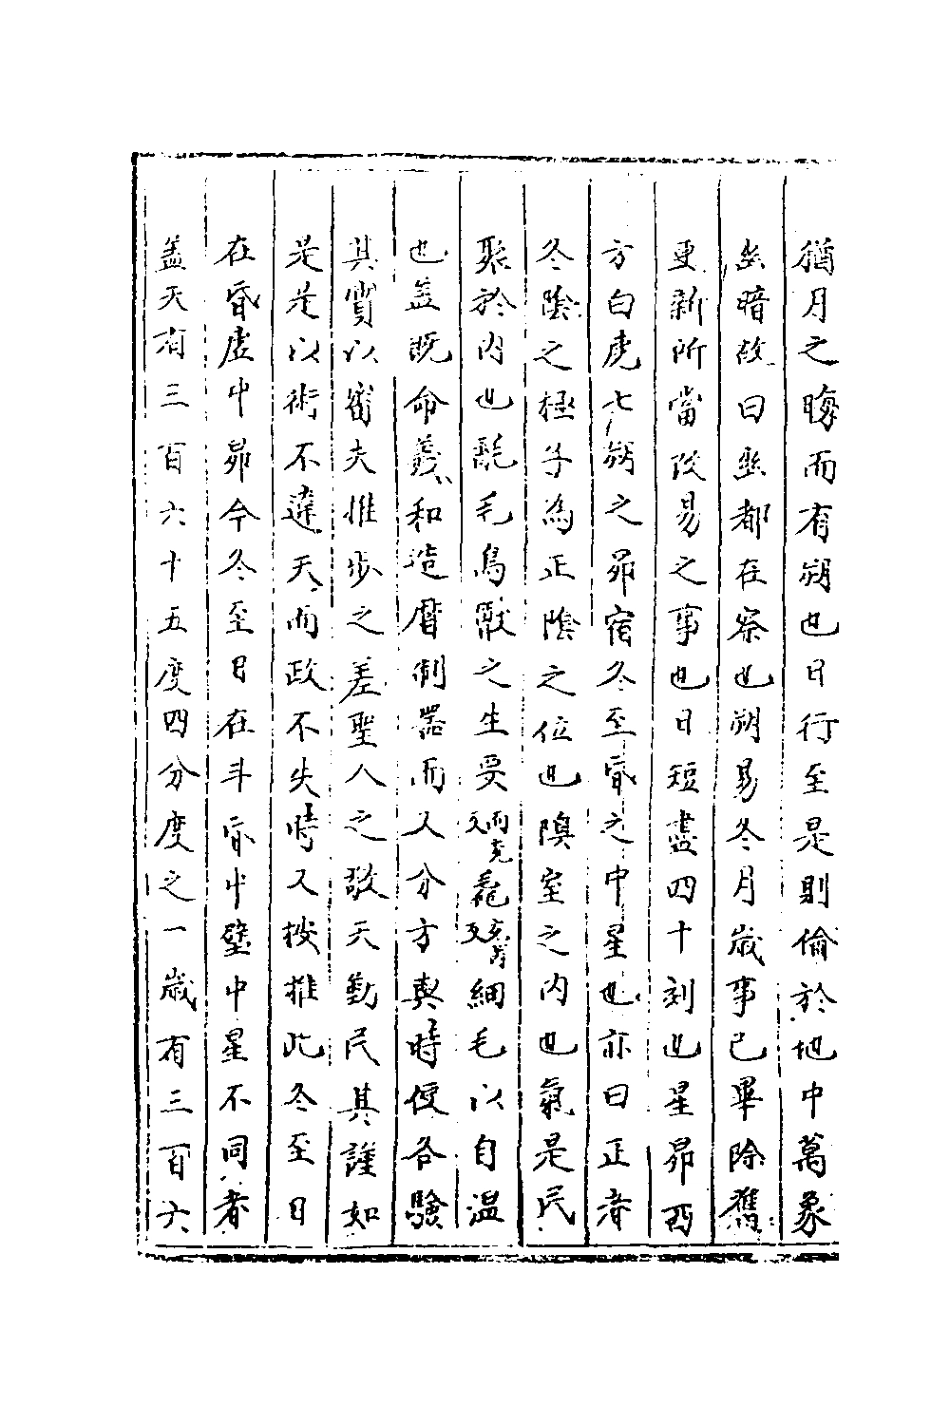 猶月之晦而有朔也日行至是則淪於地中萬象
幽暗故曰幽都在察也朔易冬月歲事已畢除舊
更新所當改易之事也日短晝四十刻也星昴西
方白虎七朔之昴宿冬至昏之中星也亦曰正者
冬陰之極子為正陰之位也隩室之内也氣是民
聚於内也氄毛鳥獸之生耎而兗反毳充芮反細毛以自溫
也盖既命羲和造曆制器而又分方與時使各驗
其實以審夫推步之差聖人之敬天勤民其謹如
是是以術不違天而政不失時又按推此冬至日
在昏虛中昴今冬至日在斗昏中壁中星不同者
盖天有三百六十五度四分度之一歲有三百六